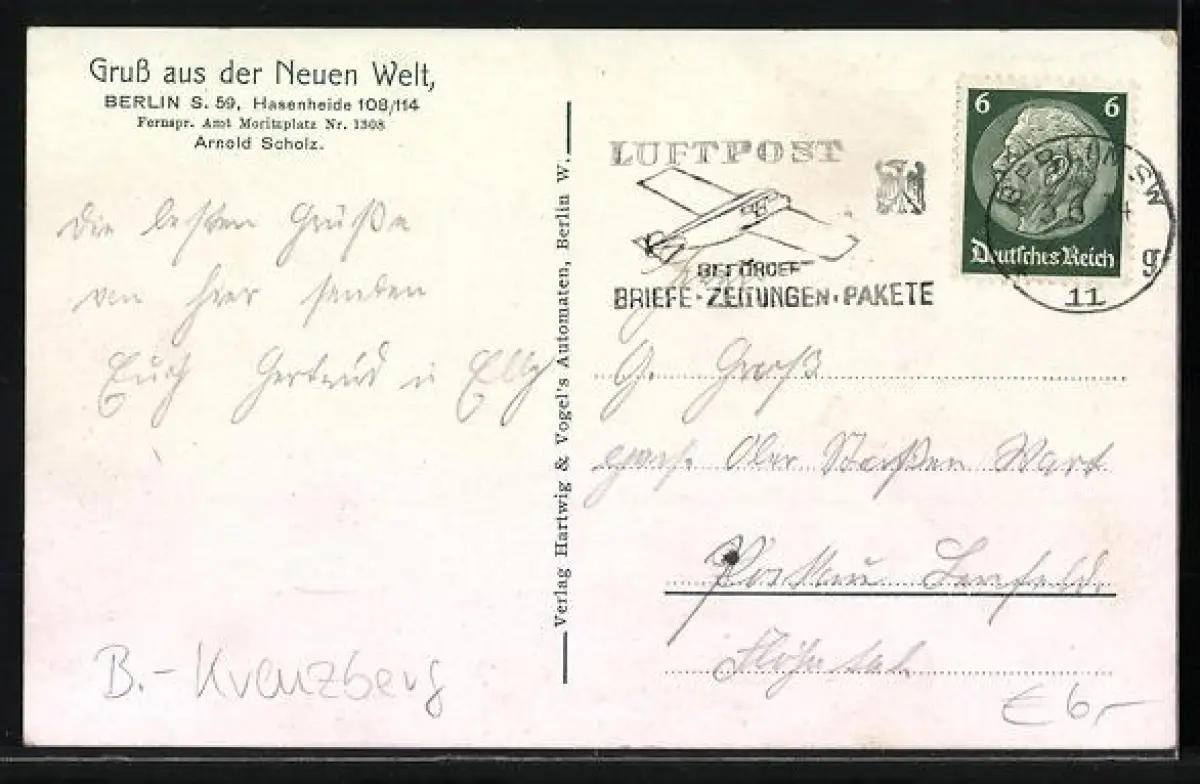 Gruß aus der Neuen Welt,
BERLIN S. 59, Hasenheide 108/114
Fernspr. Amt Moritzplatz Nr. 1308
Arnold Scholz.
Die besten Grüße
von hier senden
Euch Gertrud u Elly
B.-Kreuzberg
Verlag Hartwig & Vogel's Automaten, Berlin W.
LUFTPOST
BEFÖRDERT
BRIEFE·ZEITUNGEN·PAKETE
6 6
Deutsches Reich
BERLIN SW
11
g
G. Groß
Ober Straßen Wart
€ 6,-